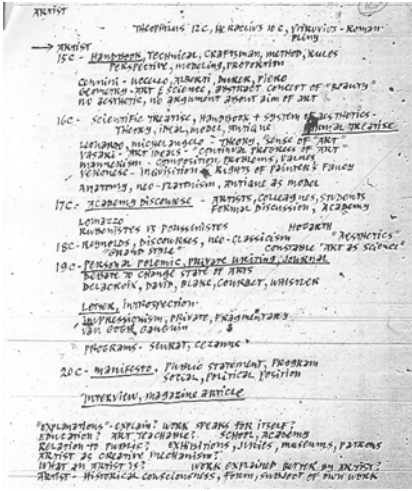 ARTIST
THEOPHILUS 12C, HERACLIUS 10C, VITRUVIUS - ROMAN
PLINY
→ ARTIST
15C - HANDBOOK, TECHNICAL, CRAFTSMAN, METHOD, RULES
PERSPECTIVE, MODELING, PROPORTION
CENNINI - UCCELLO, ALBERTI, DURER, PIERO
GEOMETRY - ART & SCIENCE, ABSTRACT CONCEPT OF "BEAUTY"
NO AESTHETIC, NO ARGUMENT ABOUT AIM OF ART
16C - SCIENTIFIC TREATISE, HANDBOOK + SYSTEM OF AESTHETICS -
THEORY, IDEAL, MODEL, ANTIQUE FORMAL TREATISE
LEONARDO, MICHELANGELO - THEORY, "SENSE OF ART"
VASARI - ART IDEALS - "CONTINUAL PROGRESS OF ART"
MANNERISM - COMPOSITION PROBLEMS, VALUES
VERONESE - INQUISITION RIGHTS OF PAINTER'S FANCY
ANATOMY, NEO-PLATONISM, ANTIQUE AS MODEL
17C - ACADEMY DISCOURSE - ARTISTS, COLLEAGUES, STUDENTS
FORMAL DISCUSSION, ACADEMY
LOMAZZO
RUBENISTES VS POUSSINISTES HOGARTH "AESTHETICS"
18C - REYNOLDS, DISCOURSES, NEO-CLASSICISM CONSTABLE "ART AS SCIENCE"
"GRAND STYLE"
19C - PERSONAL POLEMIC, PRIVATE WRITING, JOURNAL
DEBATE TO CHANGE STATE OF ARTS
DELACROIX, DAVID, BLAKE, COURBET, WHISTLER
LETTER, INTROSPECTION
IMPRESSIONISM, PRIVATE, FRAGMENTARY
VAN GOGH, GAUGUIN
PROGRAMS - SEURAT, CEZANNE
20C - MANIFESTO, PUBLIC STATEMENT, PROGRAM
SOCIAL, POLITICAL POSITION
INTERVIEW, MAGAZINE ARTICLE
"EXPLANATIONS" - EXPLAIN? WORK SPEAKS FOR ITSELF?
EDUCATION? ART TEACHABLE? SCHOOL, ACADEMY
RELATION TO PUBLIC? EXHIBITIONS, JURIES, MUSEUMS, PATRONS
ARTIST AS CREATIVE MECHANISM?
WHAT AN ARTIST IS? WORK EXPLAINED BETTER BY ARTIST?
ARTIST - HISTORICAL CONSCIOUSNESS, FORM, SUBJECT OF OWN WORK